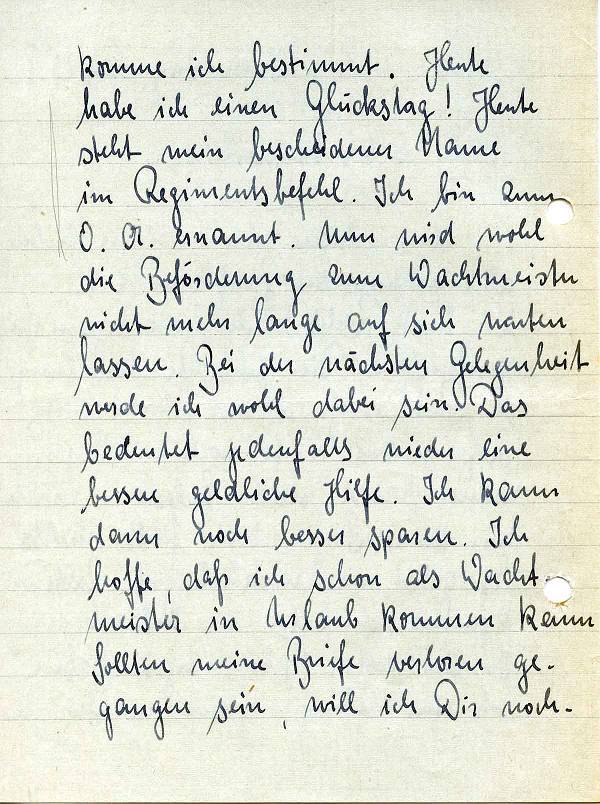 komme ich bestimmt. Heute
habe ich einen Glückstag! Heute
steht mein bescheidener Name
im Regimentsbefehl. Ich bin zum
O. A. ernannt. Nun wird wohl
die Beförderung zum Wachtmeister
nicht mehr lange auf sich warten
lassen. Bei der nächsten Gelegenheit
werde ich wohl dabei sein. Das
bedeutet jedenfalls wieder eine
bessere geldliche Hilfe. Ich kann
dann noch besser sparen. Ich
hoffe, daß ich schon als Wacht-
meister in Urlaub kommen kann
Sollten meine Briefe verloren ge-
gangen sein, will ich Dir noch-